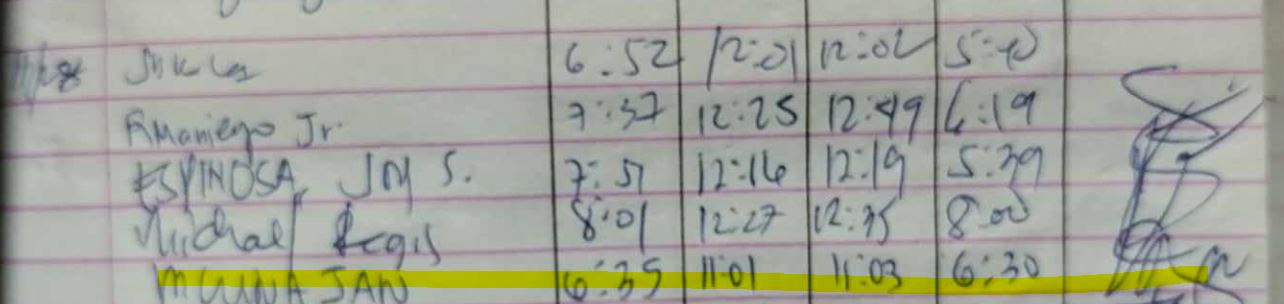 6:52 12:01 12:02 5:40
RManiego Jr. 7:37 12:25 12:49 6:19
ESPINOSA, JM S. 7:51 12:16 12:19 5:39
Michael Regis 8:01 12:27 12:35 8:00
JAN 6:35 11:01 11:03 6:30